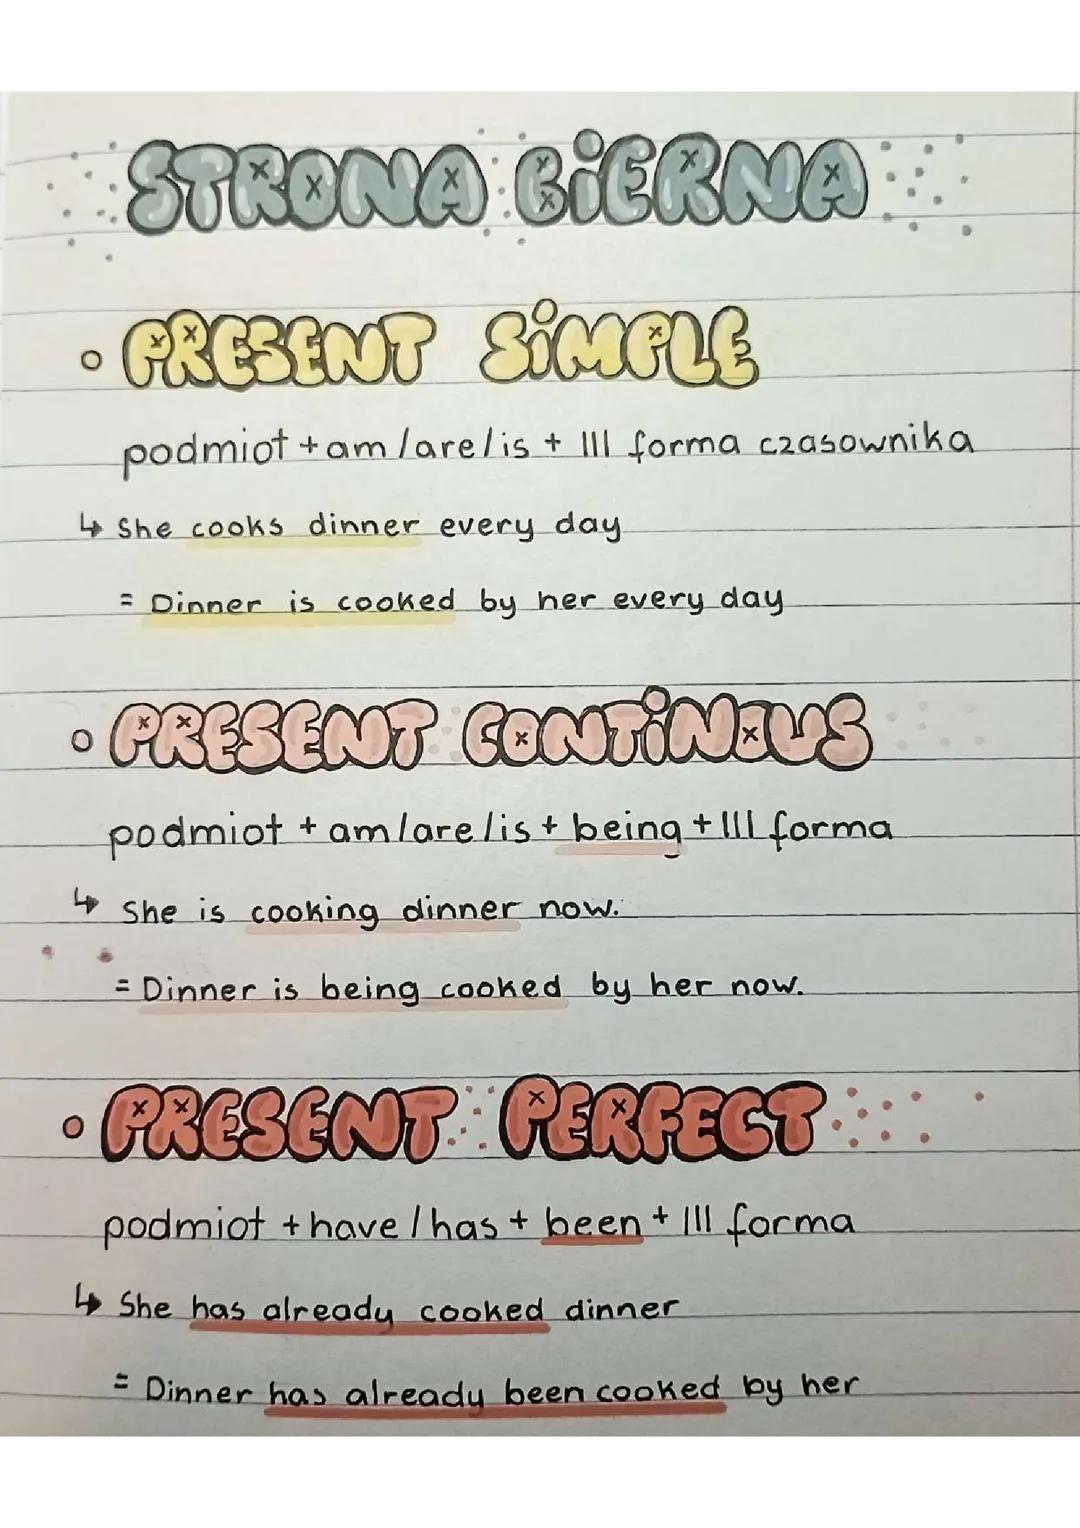 STRONA BIERNA
PRESENT SIMPLE
podmiot + am/are/is + III forma czasownika
↳ She cooks dinner every day
= Dinner is cooked by her every day
PRESENT CONTINOUS
podmiot + am/are/is + being + III forma
↳ She is cooking dinner now.
= Dinner is being cooked by her now.
PRESENT PERFECT
podmiot + have/has + been + III forma
↳ She has already cooked dinner
= Dinner has already been cooked by her